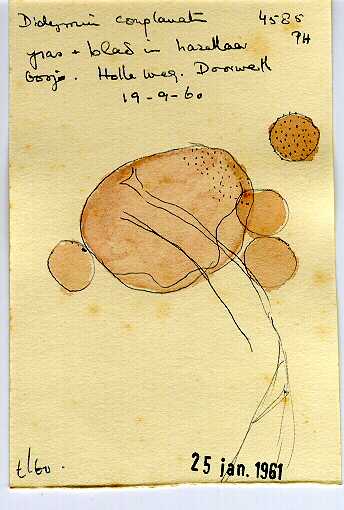 Didymium complanat 4585
PH
gras + blad in hazelaar
bosje. Holle weg. Doorwerth
19-9-60
25 jan. 1961